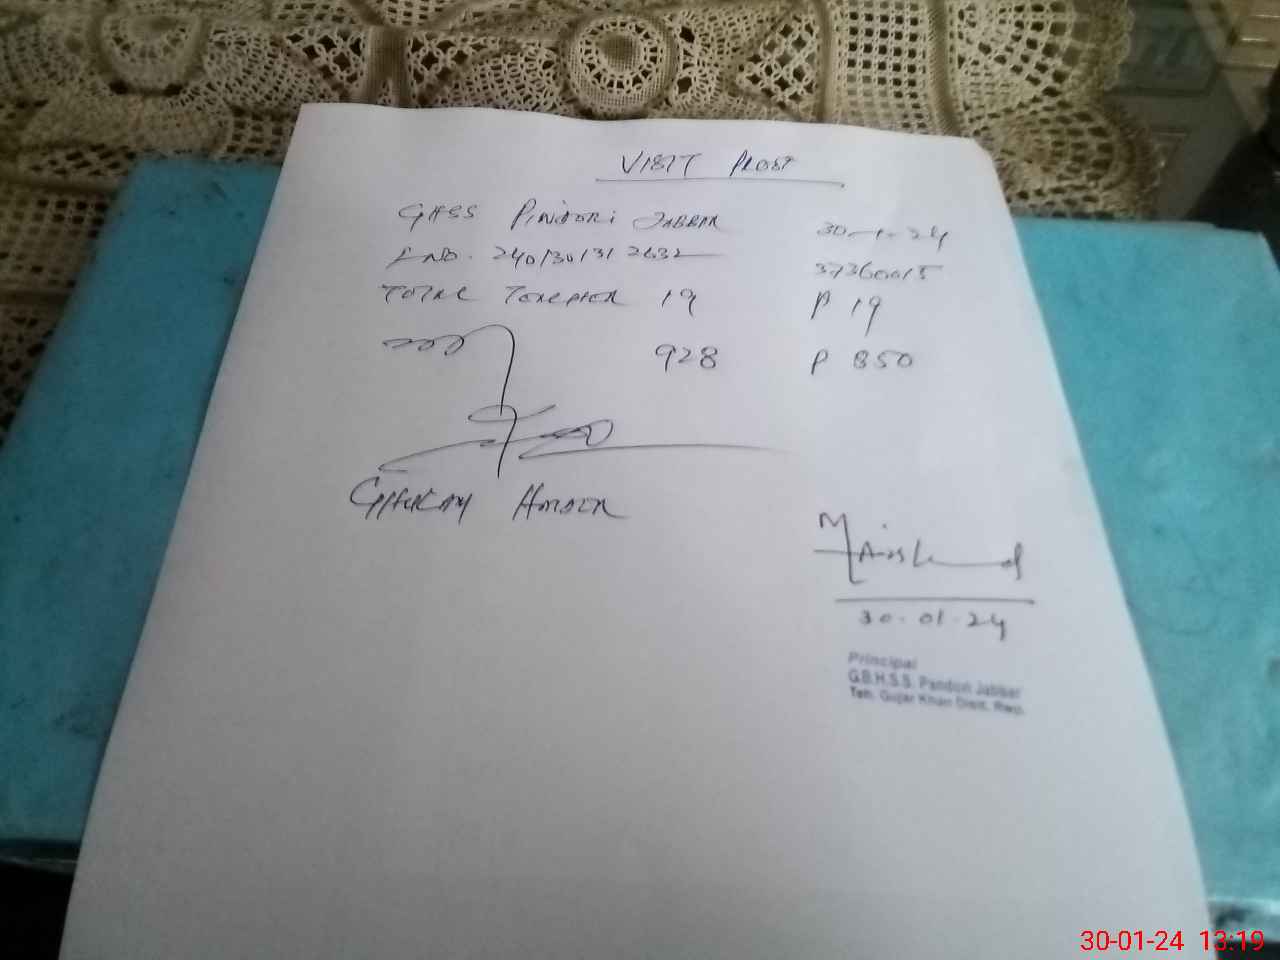 VISIT PROOF
GHSS PINDORI JABBAR 30-1-24
37360015
TOTAL TEACHER 19 P 19
928 P 850
GHULAM HAIDER
30-01-24
Principal
G.B.H.S.S. Pandori Jabbar
Teh. Gujar Khan Distt. Rwp.
30-01-24 13:19